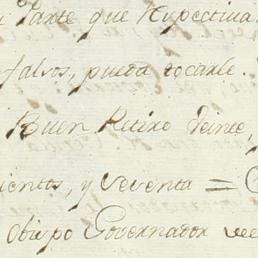 Parte que Respectiva
falvos, pueda tocarle.
Buen Retiro Veinte,
cientos, y Veventa =
Obispo Governador